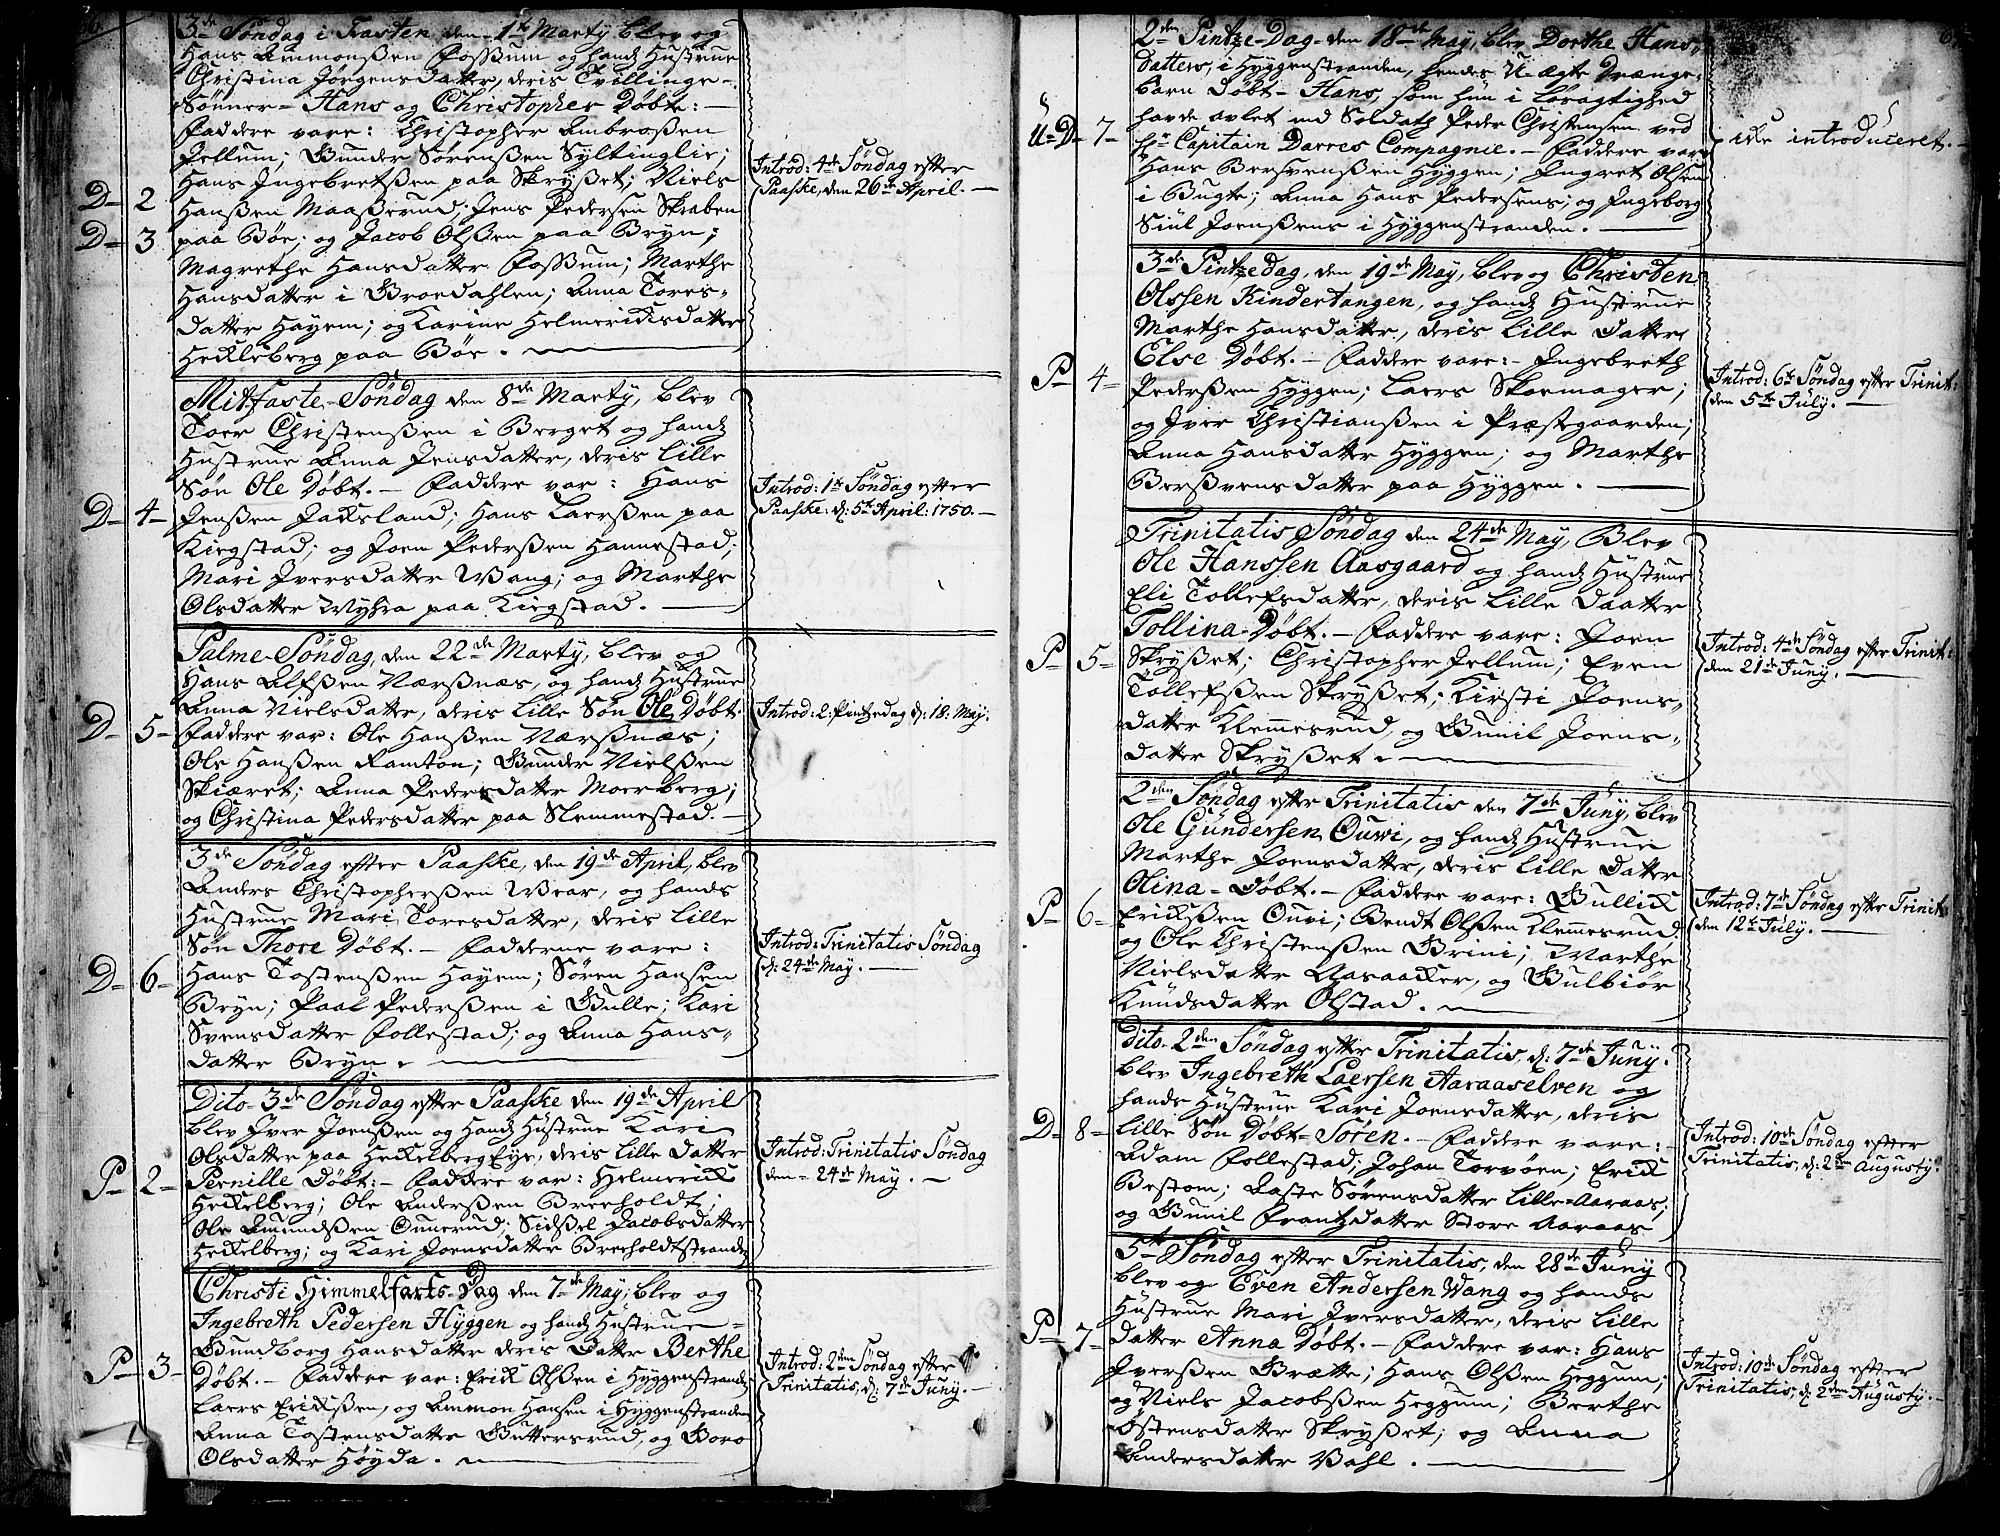 3de Søndag i Fasten den 1te Marty blev og
Hans Ammonsßen Foßum og hands Hustrue
Christina Jørgensdatter, deris Tvillinge-
Sønner= Hans og Christopher Døbte: —
Faddere vare: Christopher Ambroßen
Jellum; Gunder Sørenßen Syltinglie;
Hans Ingebretßen paa Skryßet; Niels
D= 2 Hanßen Maaßerud; Jens Pedersen Skraben
D= 3 paa Böe; og Jacob Olßen paa Bryn;
Magrethe Hansdatter Foßum; Marthe
Hansdatter i Broedahlen; Anna Tores-
datter Hayem; og Karine Helmericksdatter
Heckleberg paa Böe. —
Introd: 4de Søndag efter
Paaske, den 26de April. —
Mitfaste-Søndag den 8de Marty, blev
Toer Christenßen i Berget og hands
Hustrue Anna Jensdatter, deris Lille
Søn Ole Døbt. — Faddere var: Hans
D= 4- Jenßen Jaksland; Hans Laerßen paa
Kiegstad; og Joen Pederßen Hannestad;
Mari Iversdatter Wang; og Marthe
Olsdatter Wyhra paa Kiegstad. —
Introd: 1te Søndag efter
Paaske: d: 5te April: 1750. —
Palme-Søndag, den 22de Marty, blev og
Hans Alfßen Nærßnæs, og hands Hustrue
Anna Nielsdatter, deris Lille Søn Ole Døbt.
D= 5- Faddere var: Ole Hanßen Nærßnæs;
Ole Hanßen Ramton; Gunder Nielßen
Skiæret; Anna Pedersdatter Moerberg;
og Christina Pedersdatter paa Slemmestad. —
Introd: 2: Pintzedag d: 18: May.
3de Søndag efter Paaske, den 19de April, blev
Anders Christopherßen Wear, og hands
Hustrue Mari Toresdatter, deris Lille
Søn Thore Døbt. — Fadderne vare:
D= 6- Hans Tostenßen Hayem; Søren Hansen
Bryn; Paal Pederßen i Gulle; Kari
Svensdatter Follestad; og Anna Hans-
datter Bryn. —
Introd: Trinitatis Søndag
d: 24de May. —
Dito- 3de Søndag efter Paaske den 19de April
blev Iver Joenßen og hands Hustrue Kari
Olsdatter paa HeckelbergEye, deris Lille Datter
P= 2- Pernille Døbt:— Faddere var: Helmerick
Heckelberg; Ole Andersen Breeholdt;
Ole Amundßen Ouuerud; Sidßel Jacobsdatter
Heckelberg; og Kari Joensdatter Breeholdtstranden
Introd: Trinitatis Søndag
den= 24de May. —
Christi Himmelfarts-Dag den 7de May, blev og
Ingebreth Pedersen Hyggen og hands Hustrue=
Gundborg Hansdatter deris Datter Berthe
P= 3- Døbt. — Faddere var: Erick Olßen i Hyggenstranden
Laers Erickßen, og Ammon Hansen i Hyggenstranden
Anna Tostensdatter Buttersrud, og Boro
Olsdatter Høyda. —
Introd: 2den Søndag efter
Trinitatis, d: 7de Juny. —
2den Pintze-Dag- den 18de May, blev Dorthe Hans-
datters, i Hyggenstranden, hendes U-ægte Drænge-
barn Døbt- Hans, som hun i Løsagtighed
U=D- 7- havde avlet med Soldath Peder Christensen ved
Hr Capitain Darres Compagnie. — Faddere vare
Hans Bersvenßen Hyggen; Engret Olsen
i Bugte; Anna Hans Pedersens; og Ingeborg
Siul Joenßens i Hyggenstranden. —
ikke introduceret. —
3de Pintzedag, den 19de May, blev og Christen
Olssen Kindertangen, og hands Hustrue
Marthe Hansdatter, deris Lille Datter
P= 4- Else Døbt. — Faddere vare:- Ingebreth
Pederßen Hyggen; Laers Skoemager;
og Iver Christianßen i Præstgaarden;
Anna Hansdatter Hyggen; og Marthe
Berßvensdatter paa Hyggen. —
Introd: 6te Søndag efter Trinit:
den 5te July. —
Trinitatis Søndag den 24de May, Blev
Ole Hanssen Aasgaard og hands Hustrue
Eli Tollefsdatter, deris Lille Daatter
P= 5- Tollina- Døbt. — Faddere vare: Joen
Skryßet; Christopher Jellum; Even
Tollefßen Skryßet; Kirsti Joens-
datter Klemmesrud, og Gunil Joens-
datter Skryßet. —
Introd: 4de Søndag efter Trinit:
den 21de Juny. —
2den Søndag efter Trinitatis den 7de Juny, blev
Ole Gundersen Ouwi, og hands Hustrue
Marthe Joensdatter, deris Lille Datter
Olina= Døbt. — Faddere vare: Gullick
P= 6- Erickßen Ouvi; Bendt Olßen Klemmesrud,
og Ole Christenßen Brini; Marthe
Nielsdatter Aasaacker, og Gulbiør
Knudsdatter Olstad. —
Introd: 7de Søndag efter Trinit:
den 12te July. —
Dito- 2den Søndag efter Trinitatis, d: 7de Juny.
blev Ingebreth Laersen Aaraaselven og
hands Hustrue Kari Joensdatter, deris
D= 8- Lille Søn Døbt= Søren. — Faddere vare:-
Adam Follestad; Johan Torvøen; Erick
Bestom; Aaste Sørensdatter Lille=Aaraas;
og Gunil Frantzdatter Store Aaraas
Introd: 10de Søndag efter
Trinitatis, d: 2den Augusty.
5te Søndag efter Trinitatis, den 28de Juny
blev og Even Andersen Wang og hands
Hustrue Mari Iversdatter, deris Lille
P= 7- datter Anna Døbt. — Faddere var: Hans
Iverßen Brætte; Hans Olßen Heggum;
og Niels Jacobßen Heggum; Berthe
Østensdatter Skryßet; og Anna
Andersdatter Vahl. —
Introd: 10de Søndag efter
Trinitatis, d: 2den Augusty. —